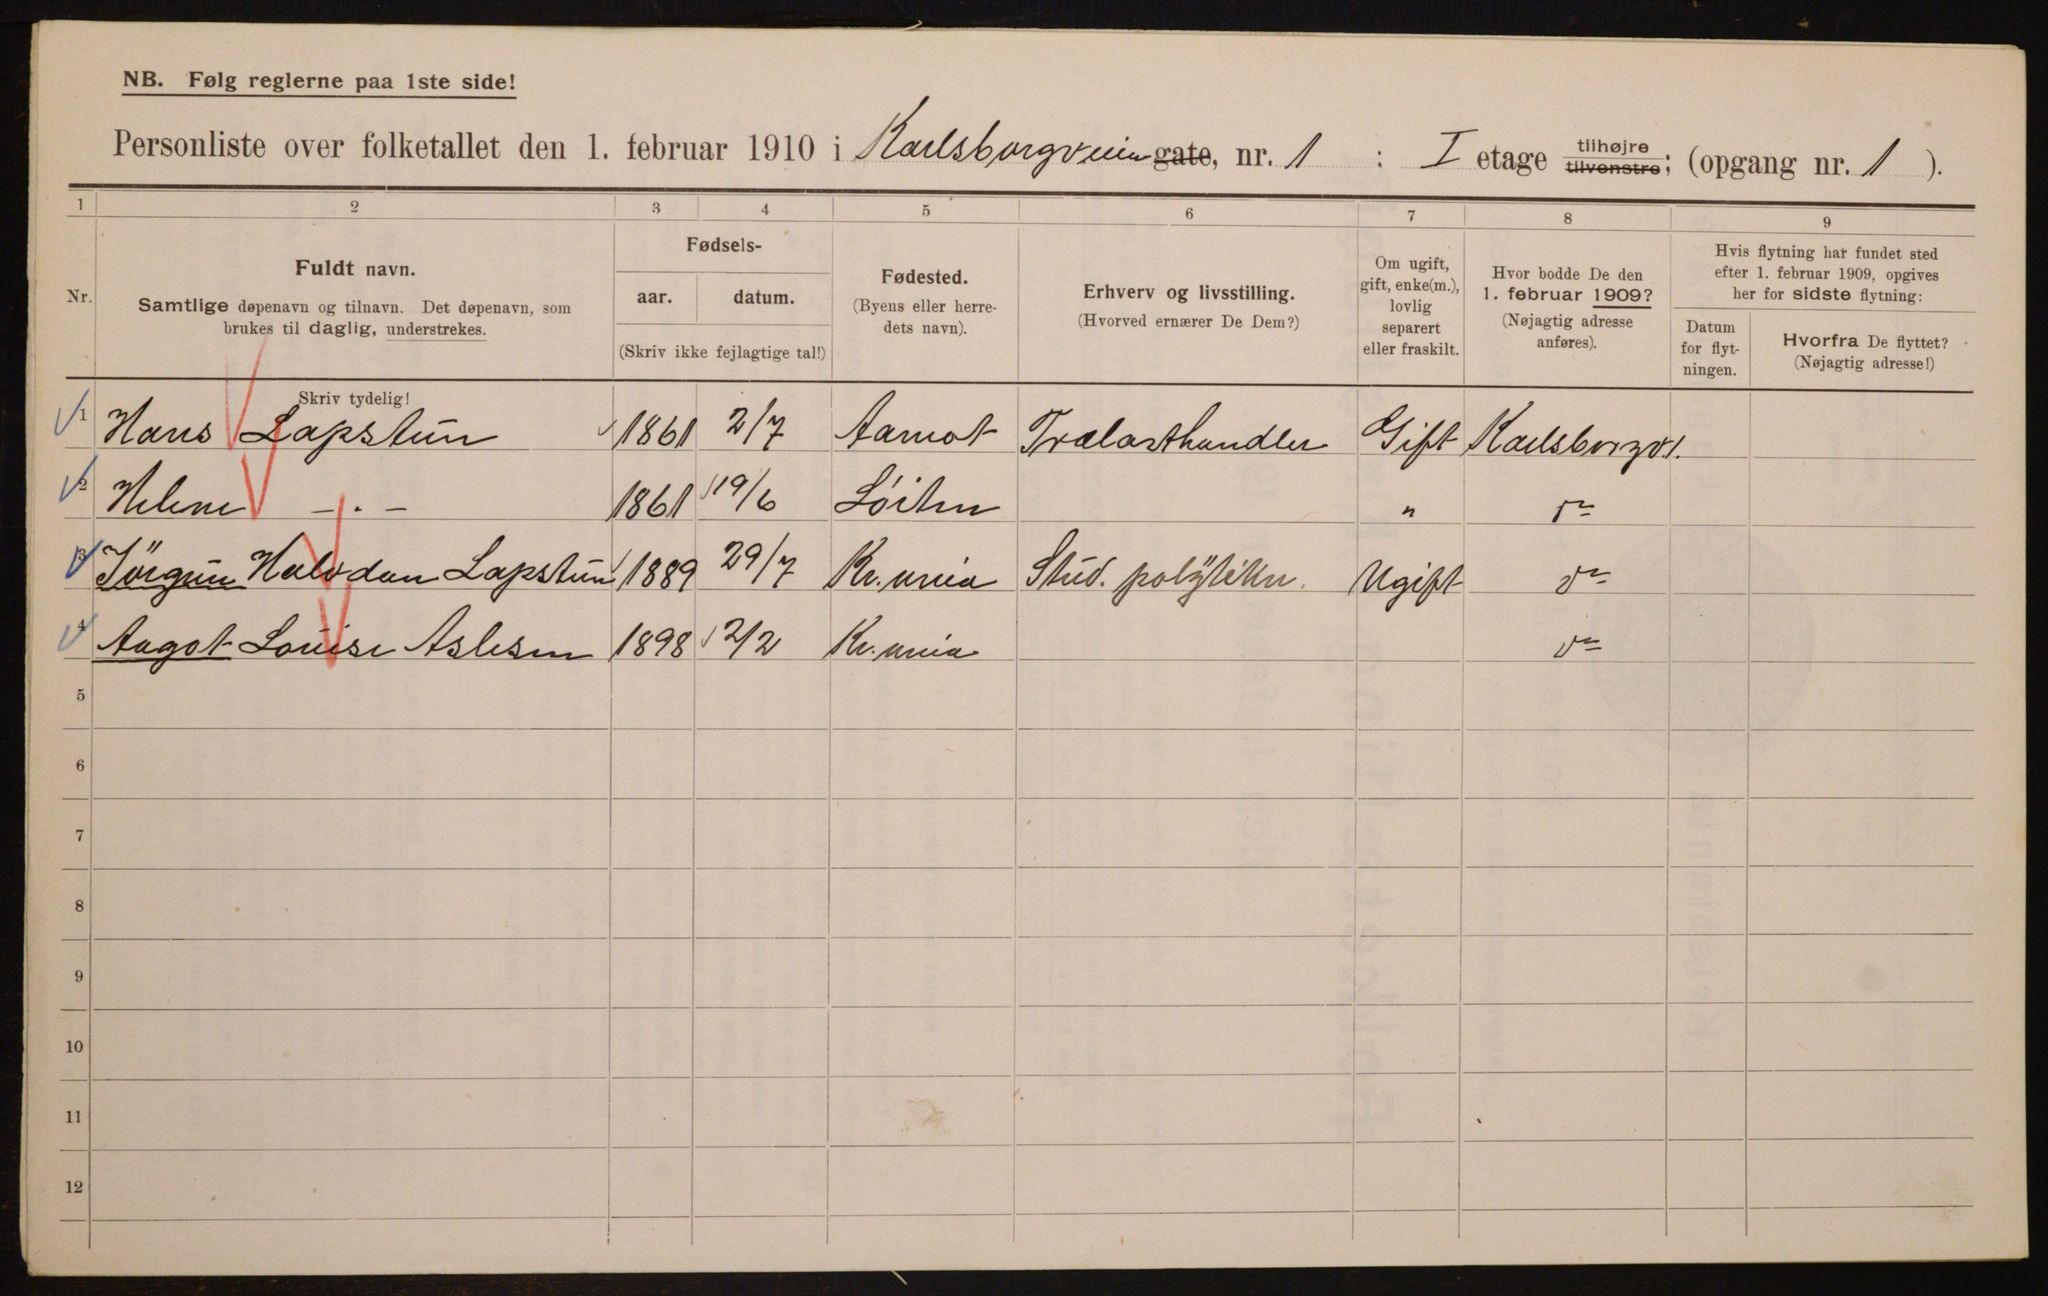 NB. Følg reglerne paa 1ste side!
Personliste over folketallet den 1. februar 1910 i Karlsborgveien gate, nr. 1 : I etage tilhøjre tilvenstre; (opgang nr. 1 ).
1 2 3 4 5 6 7 8 9
Nr.
Fuldt navn.
Samtlige døpenavn og tilnavn. Det døpenavn, som
brukes til daglig, understrekes.
Fødsels-
aar. datum.
(Skriv ikke fejlagtige tal!)
Fødested.
(Byens eller herre-
dets navn).
Erhverv og livsstilling.
(Hvorved ernærer De Dem?)
Om ugift,
gift, enke(m.),
lovlig
separert
eller fraskilt.
Hvor bodde De den
1. februar 1909?
(Nøjagtig adresse
anføres).
Hvis flytning har fundet sted
efter 1. februar 1909, opgives
her for sidste flytning:
Datum
for flyt-
ningen.
Hvorfra De flyttet?
(Nøjagtig adresse!)
Skriv tydelig!
1 Hans Lapstun 1861 2/7 Aamot Trælasthandler Gift Karlsborgv 1.
2 Helene -.- 1861 19/6 Löiten " do
3 Jörgen Halvdan Lapstun 1889 29/7 Kr.ania Stud. polytekn. Ugift do
4 Aagot Louise Aslesen 1898 2/2 Kr.ania do
5
6
7
8
9
10
11
12